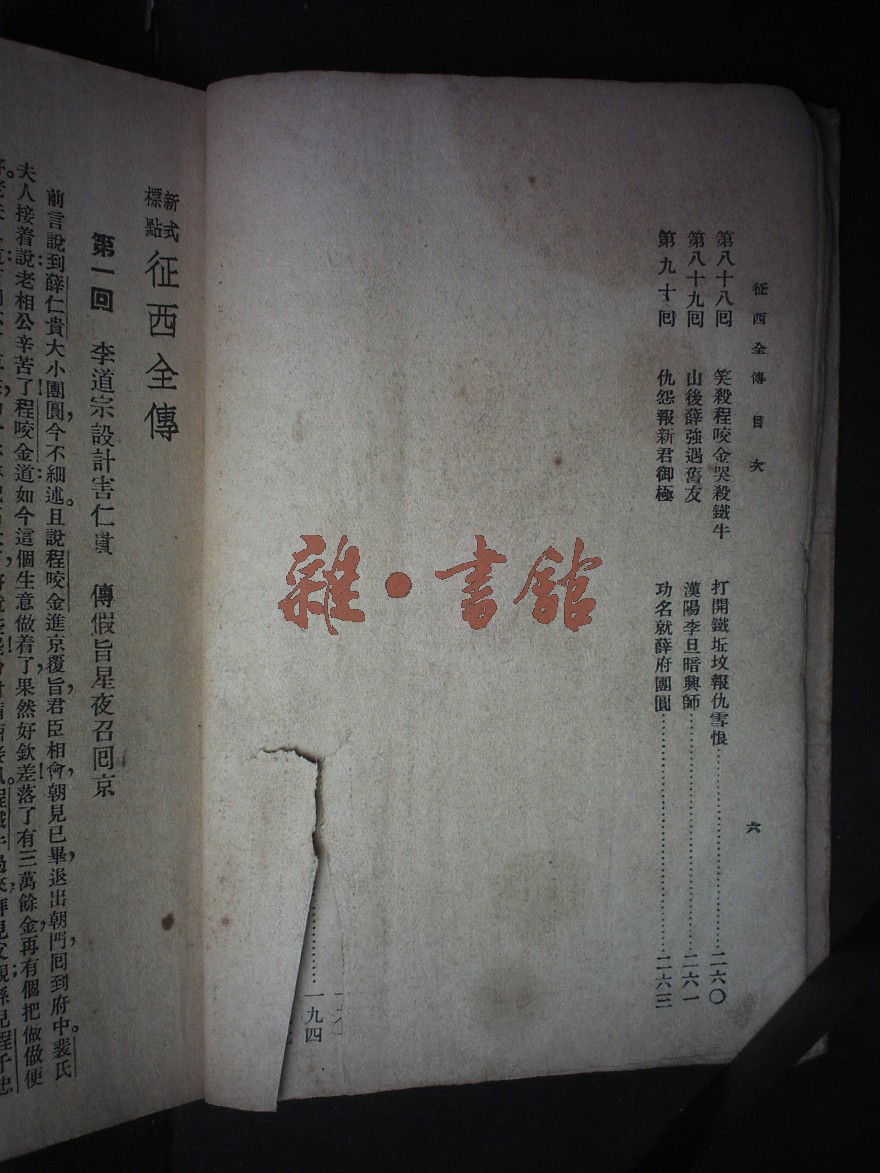 征西全傳 目次 六
第八十八囘 笑殺程咬金哭殺鐵牛 打開鐵坵坟報仇雪恨 二六〇
第八十九囘 山後薛強遇舊友 漢陽李旦暗興師 二六一
第九十囘 仇怨報新君御極 功名就薛府團圓 二六三
一九四
雜·書館
新式標點 征西全傳
第一回 李道宗設計害仁貴 傳假旨星夜召囘京
前言說到薛仁貴大小團圓,今不細述。且說程咬金進京覆旨,君臣相會,朝見已畢,退出朝門,囘到府中。裴氏
夫人接着說:老相公辛苦了!程咬金道:如今這個生意做着了,果然好欽差,落了有三萬餘金,再有個把做做便